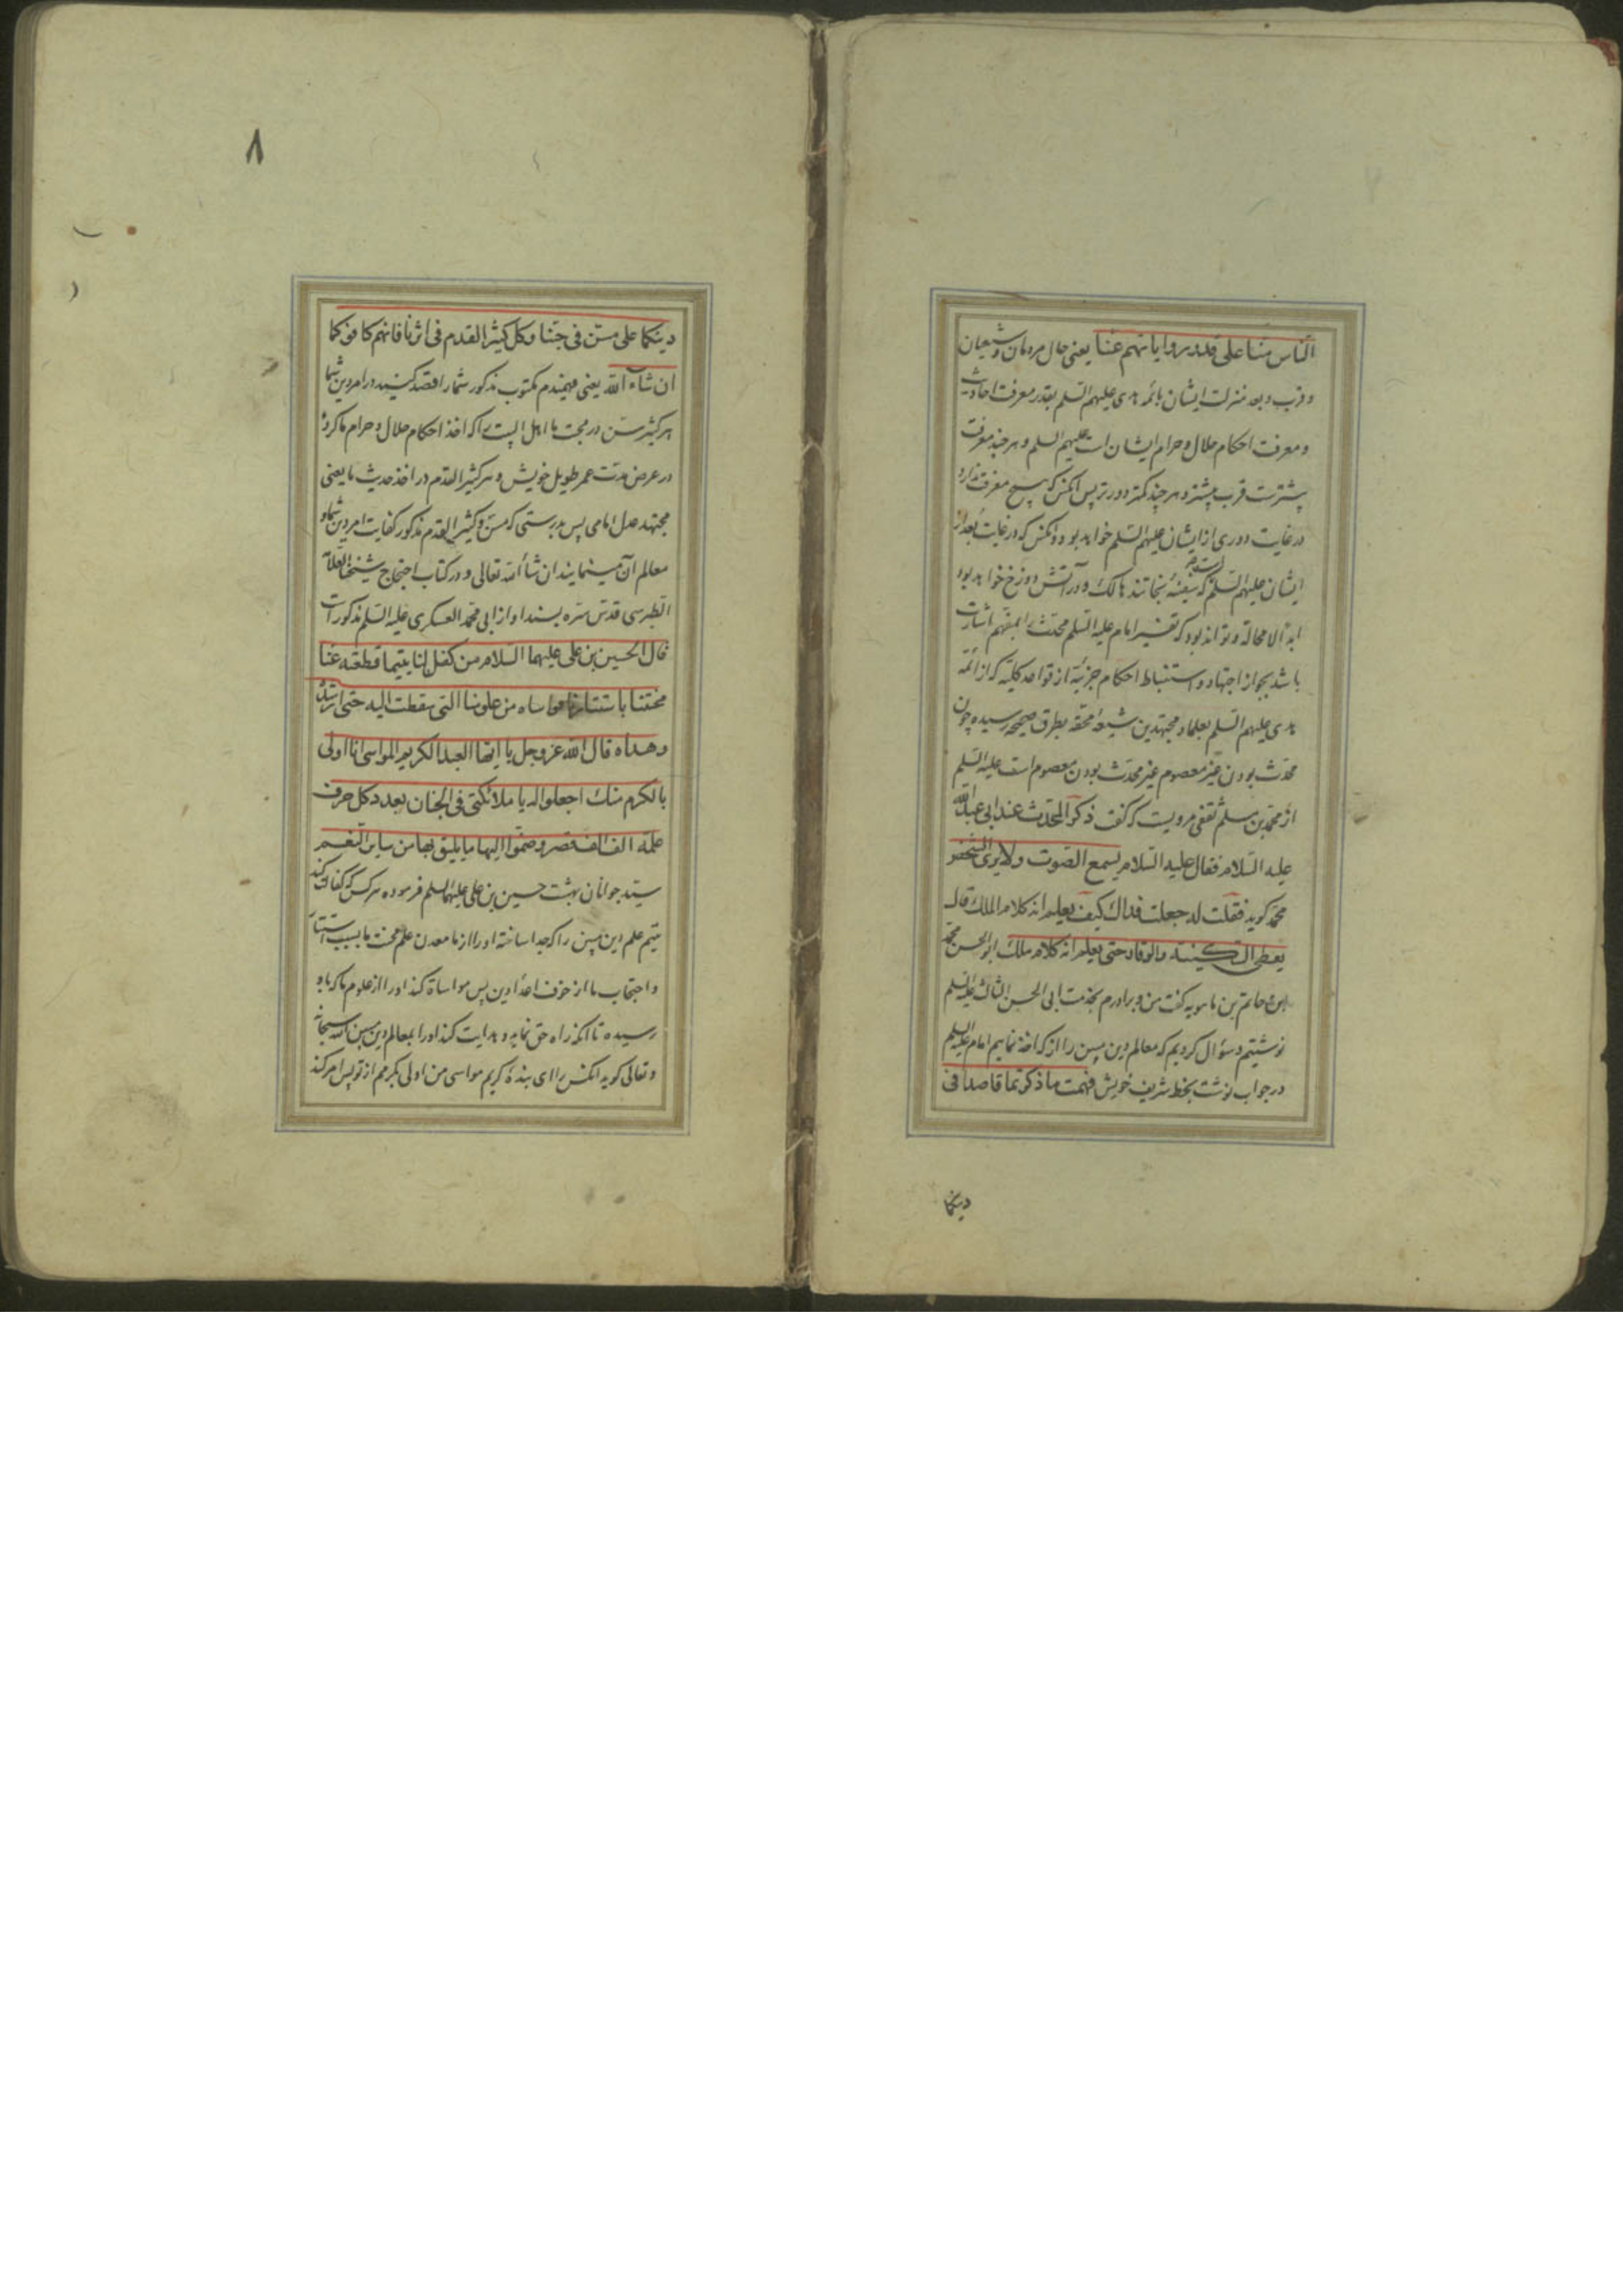 الناس منا علی قدر روایاتهم عنا یعنی حال مردمان و شیعیان
و قرب و بعد منزلت ایشان بائمه هدی علیهم السلم بقدر معرفت احادیث
و معرفت احکام حلال و حرام ایشان است علیهم السلم و هر چند معرفت
بیشترست قرب بیشتر و هر چند کمتر دورتر پس انکس که هیچ معرفت ندارد
در غایت دوری از ایشان علیهم السلم خواهد بود و انکس که در غایت بعد از
ایشان علیهم السلم که سفینهٔ نجاتند هالک و در آتش دوزخ خواهد بود
ابدا لا محاله و تواند بود که تفسیر امام علیه السلم محدث را بمفهم اشارت
باشد بجواز اجتهاد و استنباط احکام جزئیه از قواعد کلیه که از ائمه
هدی علیهم السلم بعلما و مجتهدین شیعهٔ محقه بطرق صحیحه رسیده چون
محدث بودن غیر معصوم غیر محدث بودن معصوم است علیه السلم
از محمد بن مسلم ثقفی مرویست که گفت ذکر المحدث عند ابی عبد الله
علیه السلام فقال علیه السلام یسمع الصوت ولا یری الشخص
محمد کوید فقلت له جعلت فداك کیف یعلم انه کلام الملك قال
یعطی السکینة والوقار حتی یعلم انه کلام ملك ابو الحسن محمد
ابن حاتم بن ماهویه گفت من و برادرم بخدمت ابی الحسن الثالث علیه السلم
نوشتیم و سؤال کردیم که معالم دین مبین را از که اخذ نماییم امام علیه السلم
در جواب نوشت بخط شریف خویش فهمت ما ذکرتما قاصدا فی
دینکما
۸
دینکما علی مسن فی حبنا وکل کثیر القدم فی اثرنا فانهم کافوکما
ان شاء الله یعنی فهمیدم مکتوب مذکور شما را قصد کنید در امر دین شما
هر کثیر سن در محبت ما اهل البیت را که اخذ احکام حلال و حرام ما کرده
در عرض مدت عمر طویل خویش و هر کثیر القدم در اخذ حدیث ما یعنی
مجتهد عدل امامی پس بدرستی که مسن و کثیر القدم مذکور کفایت امر دین شما و
معالم آن مینمایند ان شأ الله تعالی و در کتاب احتجاج شیخنا العلامه
الطبرسی قدس سره بسند او از ابی محمد العسکری علیه السلم مذکور است
قال الحسین بن علی علیهما السلام من کفل لنا یتیما قطعته عنا
محنتنا باستتارنا فواساه من علومنا التی سقطت الیه حتی ارشده
وهداه قال الله عز وجل یا ایها العبد الکریم المواسی انا اولی
بالکرم منك اجعلوا له یا ملائکتی فی الجنان بعدد کل حرف
علمه الف الف قصر وضموا الیها ما یلیق بها من سایر النعم
سید جوانان بهشت حسین بن علی علیهما السلم فرموده هر کس که کفالت کند
یتیم علم این مبین را که جدا ساخته او را از ما معدن علم محنت ما بسبب استتار
و احتجاب ما از خوف اعدا دین پس مواساة کند او را از علوم ما که باو
رسیده تا انکه راه حق نماید و هدایت کند او را بمعالم دین مبین الله سبحانه
و تعالی کوید انکس را ای بندهٔ کریم مواسی من اولی بکرمم از تو پس امر کند